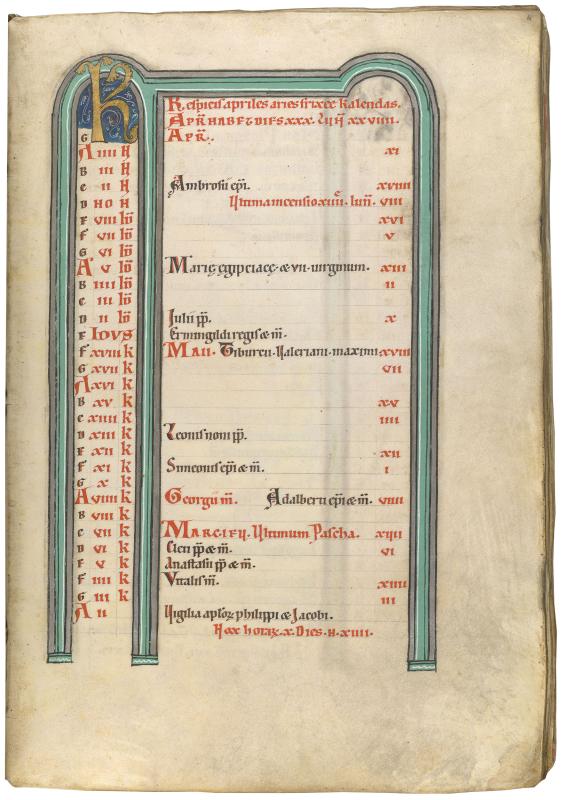 K Respicis apriles aries frixee kalendas.
APR HABET DIES xxx. LUN xxviiii.
G APR.
A iiii N xi
B iii N
C ii N Ambrosii epi. xviiii
D NON Ultima incensio xiiii. lun. viii
E viii ID xvi
F vii ID v
G vi ID
A v ID Marie egipciace. & vii. virginum. xiii
B iiii ID ii
C iii ID
D ii ID Julii pp. x
E IDVS Ermingildi regis & m.
F xviii k MAII. Tiburcii. Valeriani. maximi xviii
G xvii k vii
A xvi k
B xv k xv
C xiiii k iiii
D xiii k Leonis noni pp.
E xii k xii
F xi k Simeonis epi & m. i
G x k
A viiii k Georgii m. Adalberti epi & m. viiii
B viii k
C vii k MARCI EV. Ultimum Pascha. xvii
D vi k Cleti pp & m. vi
E v k Anastasii pp & m.
F iiii k Vitalis m. xiiii
G iii k iii
A ii Vigilia aploR philippi & Jacobi.
Nox horas. x. Dies. H. xiiii.